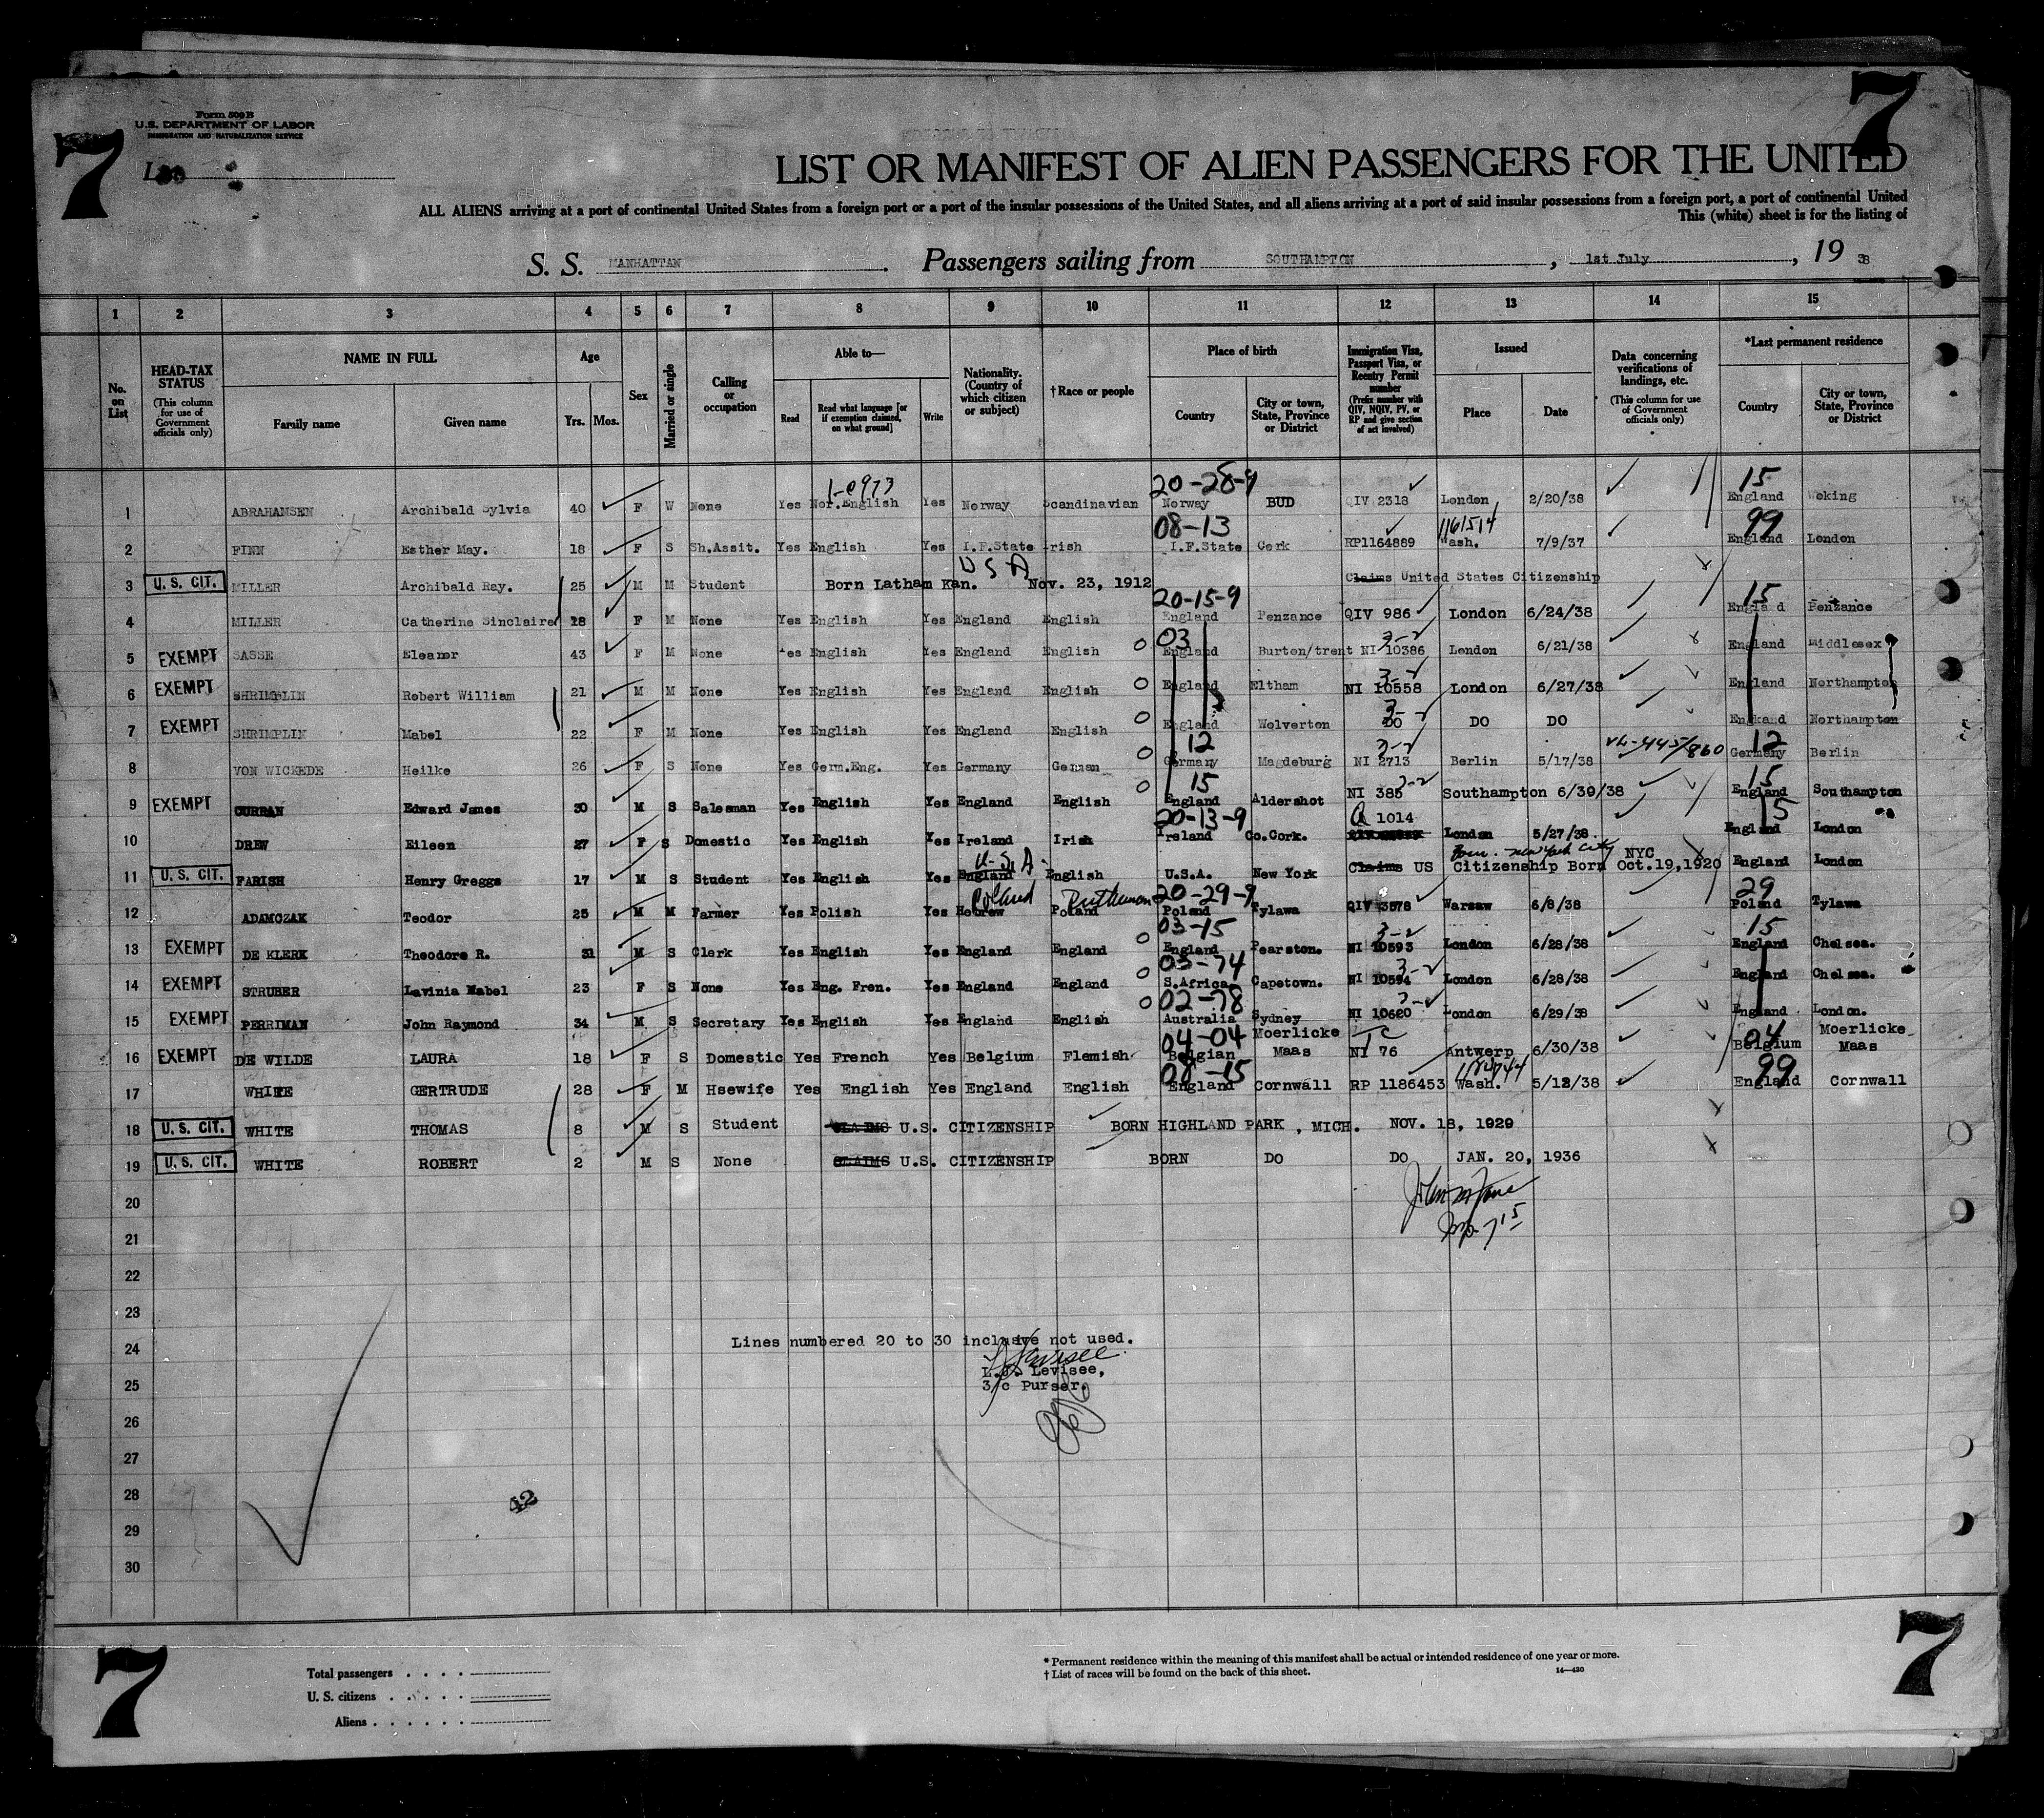 7
7
Form 500 B
U.S. DEPARTMENT OF LABOR
IMMIGRATION AND NATURALIZATION SERVICE
LIST OR MANIFEST OF ALIEN PASSENGERS FOR THE UNITED
ALL ALIENS arriving at a port of continental United States from a foreign port or a port of the insular possessions of the United States, and all aliens arriving at a port of said insular possessions from a foreign port, a port of continental United
This (white) sheet is for the listing of
S. S. MANHATTAN. Passengers sailing from SOUTHAMPTON, 1st July, 19 38
1 2 3 4 5 6 7 8 9 10 11 12 13 14 15
No. on List
HEAD-TAX STATUS (This column for use of Government officials only)
NAME IN FULL
Family name Given name
Age
Yrs. Mos.
Sex
Married or single
Calling or occupation
Able to—
Read Read what language [or if exemption claimed, on what ground] Write
Nationality. (Country of which citizen or subject)
† Race or people
Place of birth
Country City or town, State, Province or District
Immigration Visa, Passport Visa, or Reentry Permit number (Prefix number with QIV, NQIV, PV, or RP and give section of act involved)
Issued
Place Date
Data concerning verifications of landings, etc. (This column for use of Government officials only)
*Last permanent residence
Country City or town, State, Province or District
1-0973 20-28-9 15
1 ABRAHAMSEN Archibald Sylvia 40 F W None Yes Nor.English Yes Norway Scandinavian Norway BUD QIV 2318 London 2/20/38 England Woking
08-13 1161514 99
2 FINN Esther May. 18 F S Sh.Assit. Yes English Yes I.F.State Irish I.F.State Cork RP1164889 Wash. 7/9/37 England London
U S A
3 U. S. CIT. MILLER Archibald Ray. 25 M M Student Born Latham Kan. Nov. 23, 1912 Claims United States Citizenship
20-15-9 15
4 MILLER Catherine Sinclaire 28 F M None Yes English Yes England English England Penzance QIV 986 London 6/24/38 England Penzance
03 3-2
5 EXEMPT SASSE Eleanor 43 F M None Yes English Yes England English England Burton/trent NI 10386 London 6/21/38 England Middlesex
3-2
6 EXEMPT SHRIMPLIN Robert William 21 M M None Yes English Yes England English England Eltham NI 10558 London 6/27/38 England Northampton
3-2
7 EXEMPT SHRIMPLIN Mabel 22 F M None Yes English Yes England English England Wolverton DO DO DO England Northampton
12 3-2 12
8 VON WICKEDE Heilke 26 F S None Yes Germ.Eng. Yes Germany German Germany Magdeburg NI 2713 Berlin 5/17/38 Germany Berlin
15 3-2 15
9 EXEMPT CURRAN Edward James 30 M S Salesman Yes English Yes England English England Aldershot NI 385 Southampton 6/39/38 England Southampton
20-13-9 1014 15
10 DREW Eileen 27 F S Domestic Yes English Yes Ireland Irish Ireland Co.Cork. London 5/27/38 England London
U.S.A. New York City NYC
11 U. S. CIT. FARISH Henry Greggs 17 M S Student Yes English Yes England English U.S.A. New York Claims US Citizenship Born Oct.19,1920 England London
Poland Ruthenian 20-29-9 29
12 ADAMCZAK Teodor 25 M M Farmer Yes Polish Yes Hebrew Poland Poland Tylawa QIV 3578 Warsaw 6/8/38 Poland Tylawa
03-15 3-2 15
13 EXEMPT DE KLERK Theodore R. 31 M S Clerk Yes English Yes England England England Pearston. NI 10593 London 6/28/38 England Chelsea.
03-74 3-2
14 EXEMPT STRUBER Lavinia Mabel 23 F S None Yes Eng. Fren. Yes England England S.Africa. Capetown. NI 10594 London 6/28/38 England Chelsea.
02-78 3-2
15 EXEMPT PERRIMAN John Raymond 34 M S Secretary Yes English Yes England English Australia Sydney NI 10620 London 6/29/38 England London.
04-04 TC 04
16 EXEMPT DE WILDE LAURA 18 F S Domestic Yes French Yes Belgium Flemish Belgian Moerlicke Maas NI 76 Antwerp 6/30/38 Belgium Moerlicke Maas
08-15 99
17 WHITE GERTRUDE 28 F M Hsewife Yes English Yes England English England Cornwall RP 1186453 Wash. 5/12/38 England Cornwall
18 U. S. CIT. WHITE THOMAS 8 M S Student CLAIMS U.S. CITIZENSHIP BORN HIGHLAND PARK , MICH. NOV. 18, 1929
19 U. S. CIT. WHITE ROBERT 2 M S None CLAIMS U.S. CITIZENSHIP BORN DO DO JAN. 20, 1936
20
21
22
23
24 Lines numbered 20 to 30 inclusive not used.
L. Levisee,
25 3/c Purser.
26
27
28 42
29
30
7
7
Total passengers
U. S. citizens
Aliens
* Permanent residence within the meaning of this manifest shall be actual or intended residence of one year or more.
† List of races will be found on the back of this sheet. 14—430